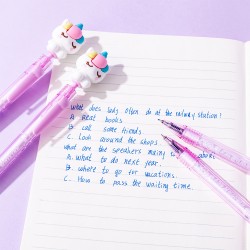 What does lady often do at the railway station?
A. Read books.
B. call some friends.
C. Look around the shops.
what are the speakers mainly
A. what to do next year.
B. where to go for vacations.
C. How to pass the waiting time.